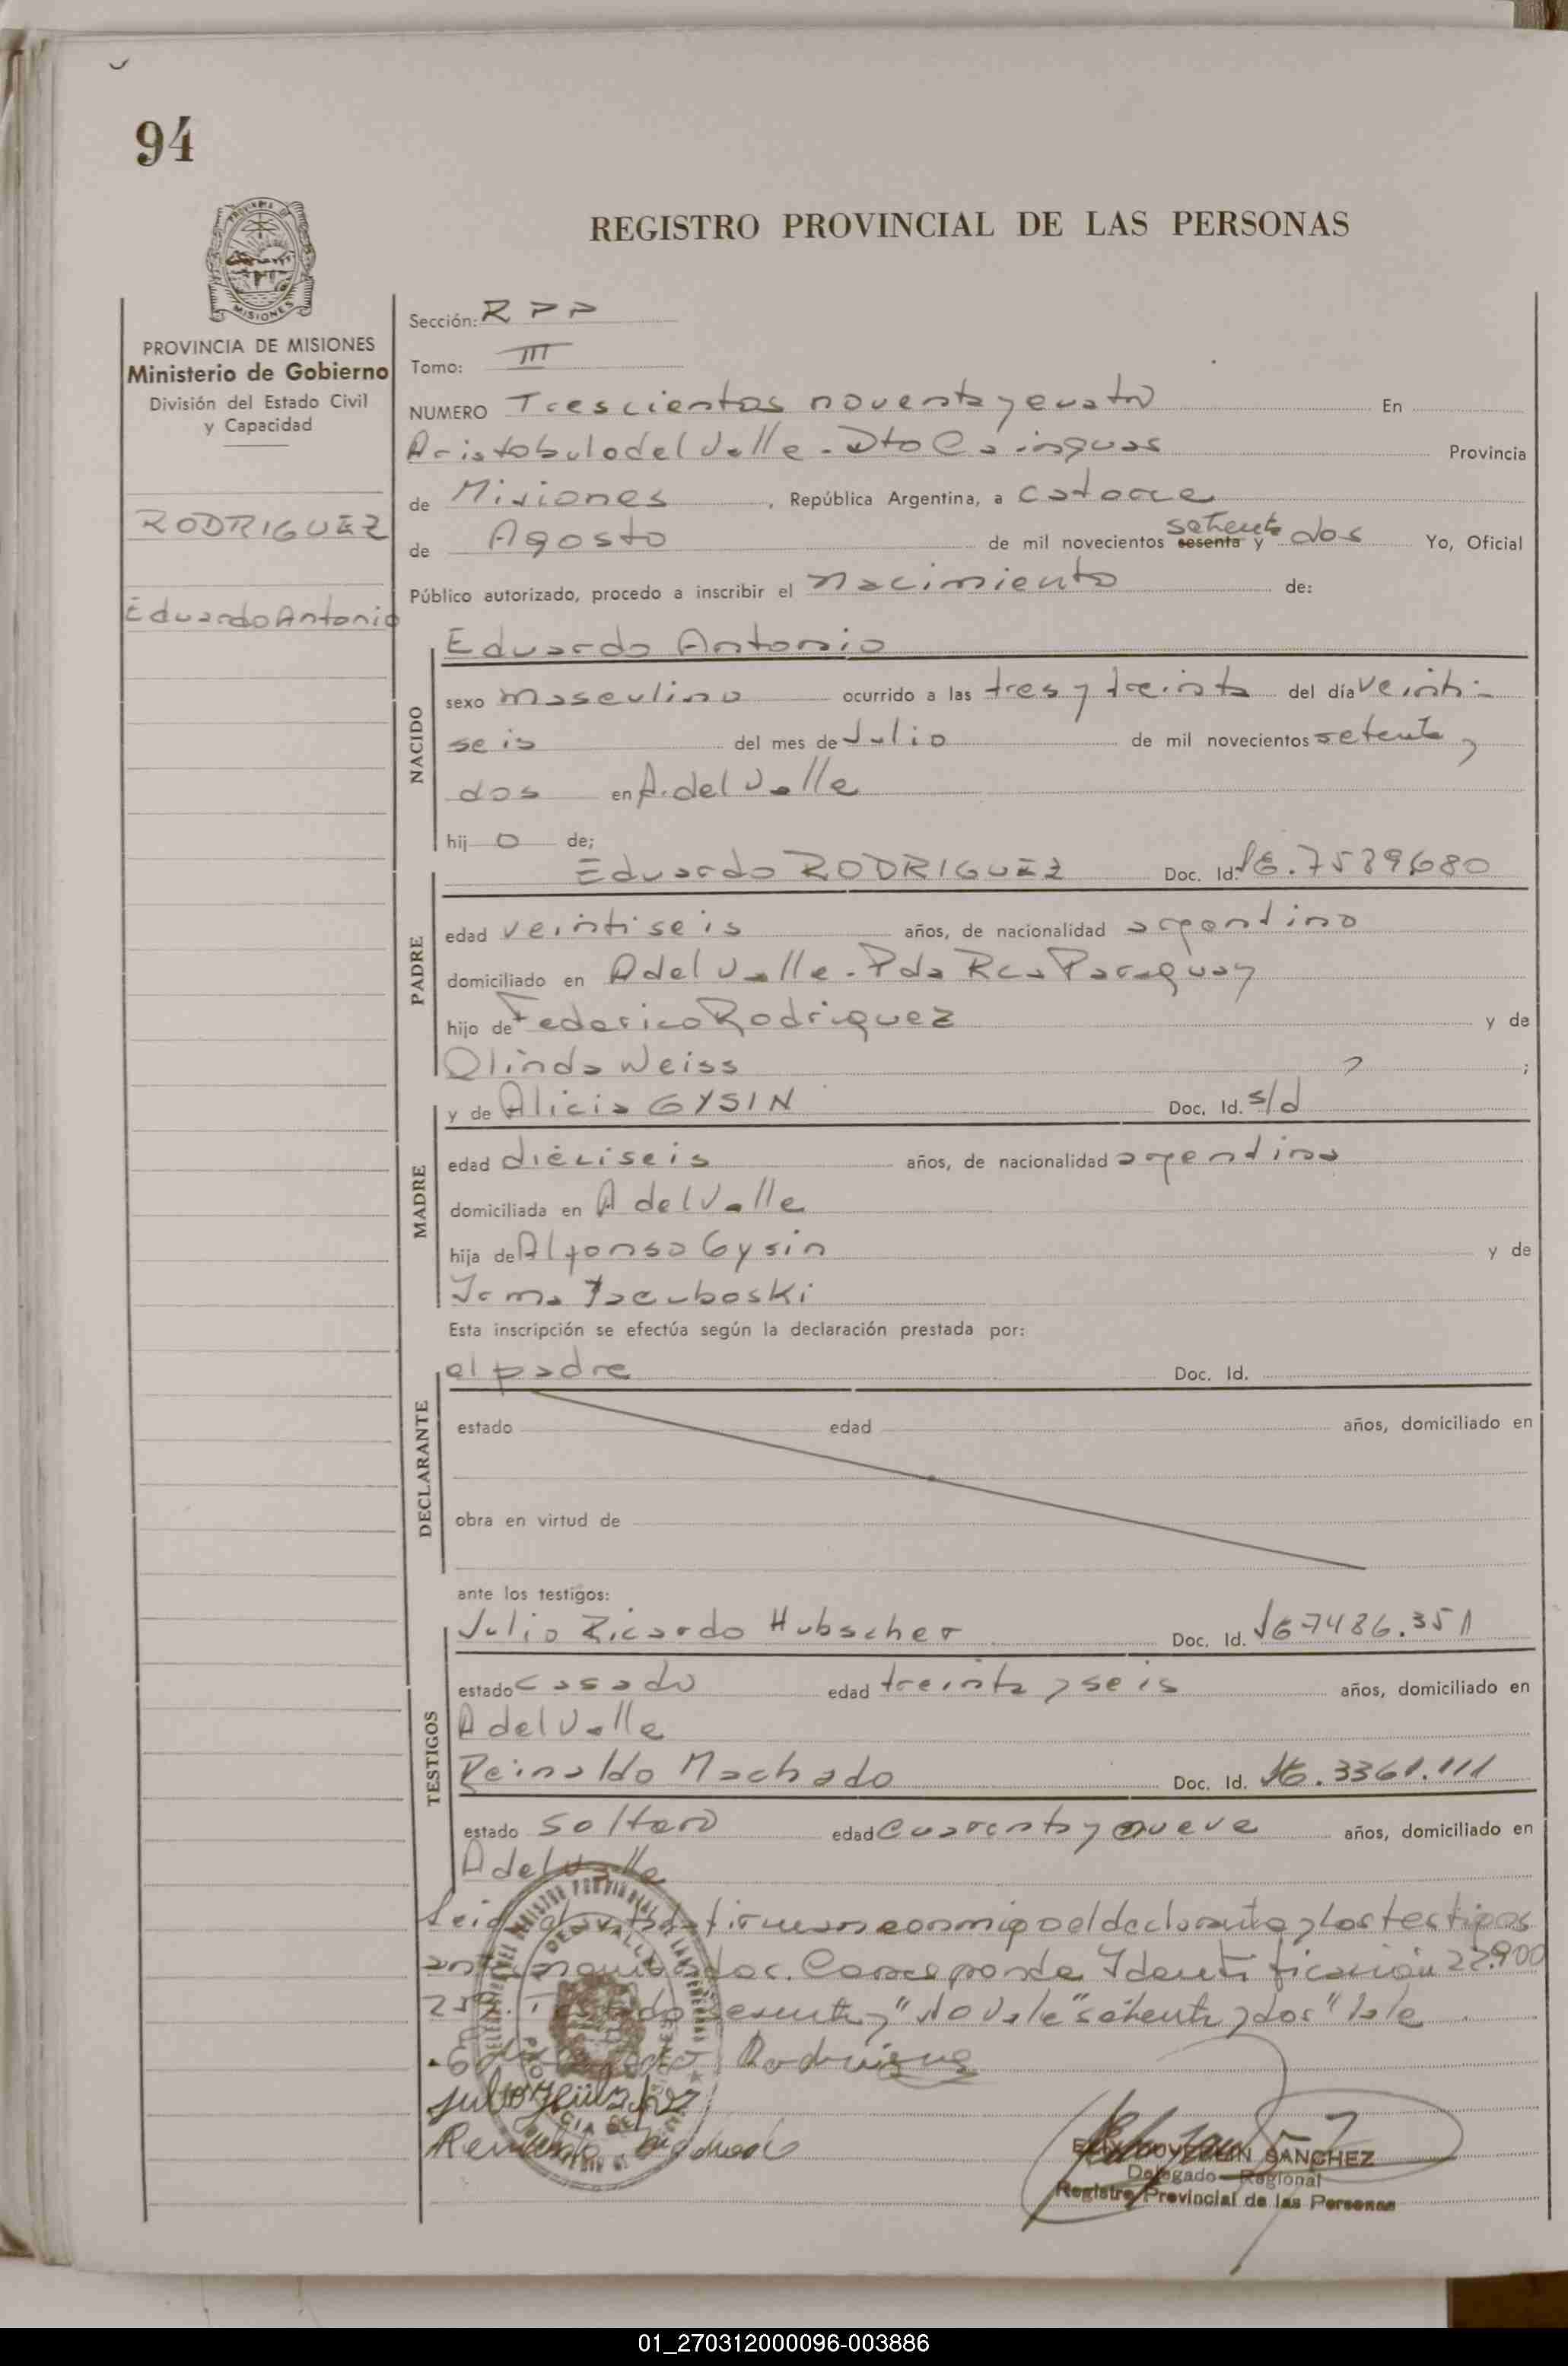 94
REGISTRO PROVINCIAL DE LAS PERSONAS
MISIONES
PROVINCIA DE MISIONES
Ministerio de Gobierno
División del Estado Civil
y Capacidad
RODRIGUEZ
Eduardo Antonio
Sección: R P P
Tomo: III
NUMERO Trescientos noventa y cuatro En
Aristobulo del Valle - Dto Cainguas Provincia
de Misiones, República Argentina, a catorce
de Agosto de mil novecientos sesenta y setenta dos Yo, Oficial
Público autorizado, procedo a inscribir el nacimiento de:
NACIDO
Eduardo Antonio
sexo masculino ocurrido a las tres y treinta del día veinti-
seis del mes de Julio de mil novecientos setenta y
dos en A. del Valle
hij o de;
PADRE
Eduardo RODRIGUEZ Doc. Id. 7539680
edad veintiseis años, de nacionalidad argentino
domiciliado en A del Valle - Pda Rca Paraguay
hijo de Federico Rodriguez y de
Olinda Weiss ;
MADRE
y de Alicia GYSIN Doc. Id. s/d
edad dieciseis años, de nacionalidad argentina
domiciliada en A del Valle
hija de Alfonso Gysin y de
Irma Jacuboski
Esta inscripción se efectúa según la declaración prestada por:
DECLARANTE
el padre Doc. Id.
estado edad años, domiciliado en
obra en virtud de
ante los testigos:
TESTIGOS
Julio Ricardo Hubscher Doc. Id. 7486.351
estado casado edad treinta y seis años, domiciliado en
A del Valle
Reinaldo Machado Doc. Id. 3361.111
estado soltero edad cuarenta y nueve años, domiciliado en
A del Valle
Leida firman conmigo el declarante y los testigos
Corresponde Identificación 22.900
"No vale" "setenta y dos" Vale
Rodriguez
FELIX SANCHEZ
Delegado Regional
Registro Provincial de las Personas
01_270312000096-003886